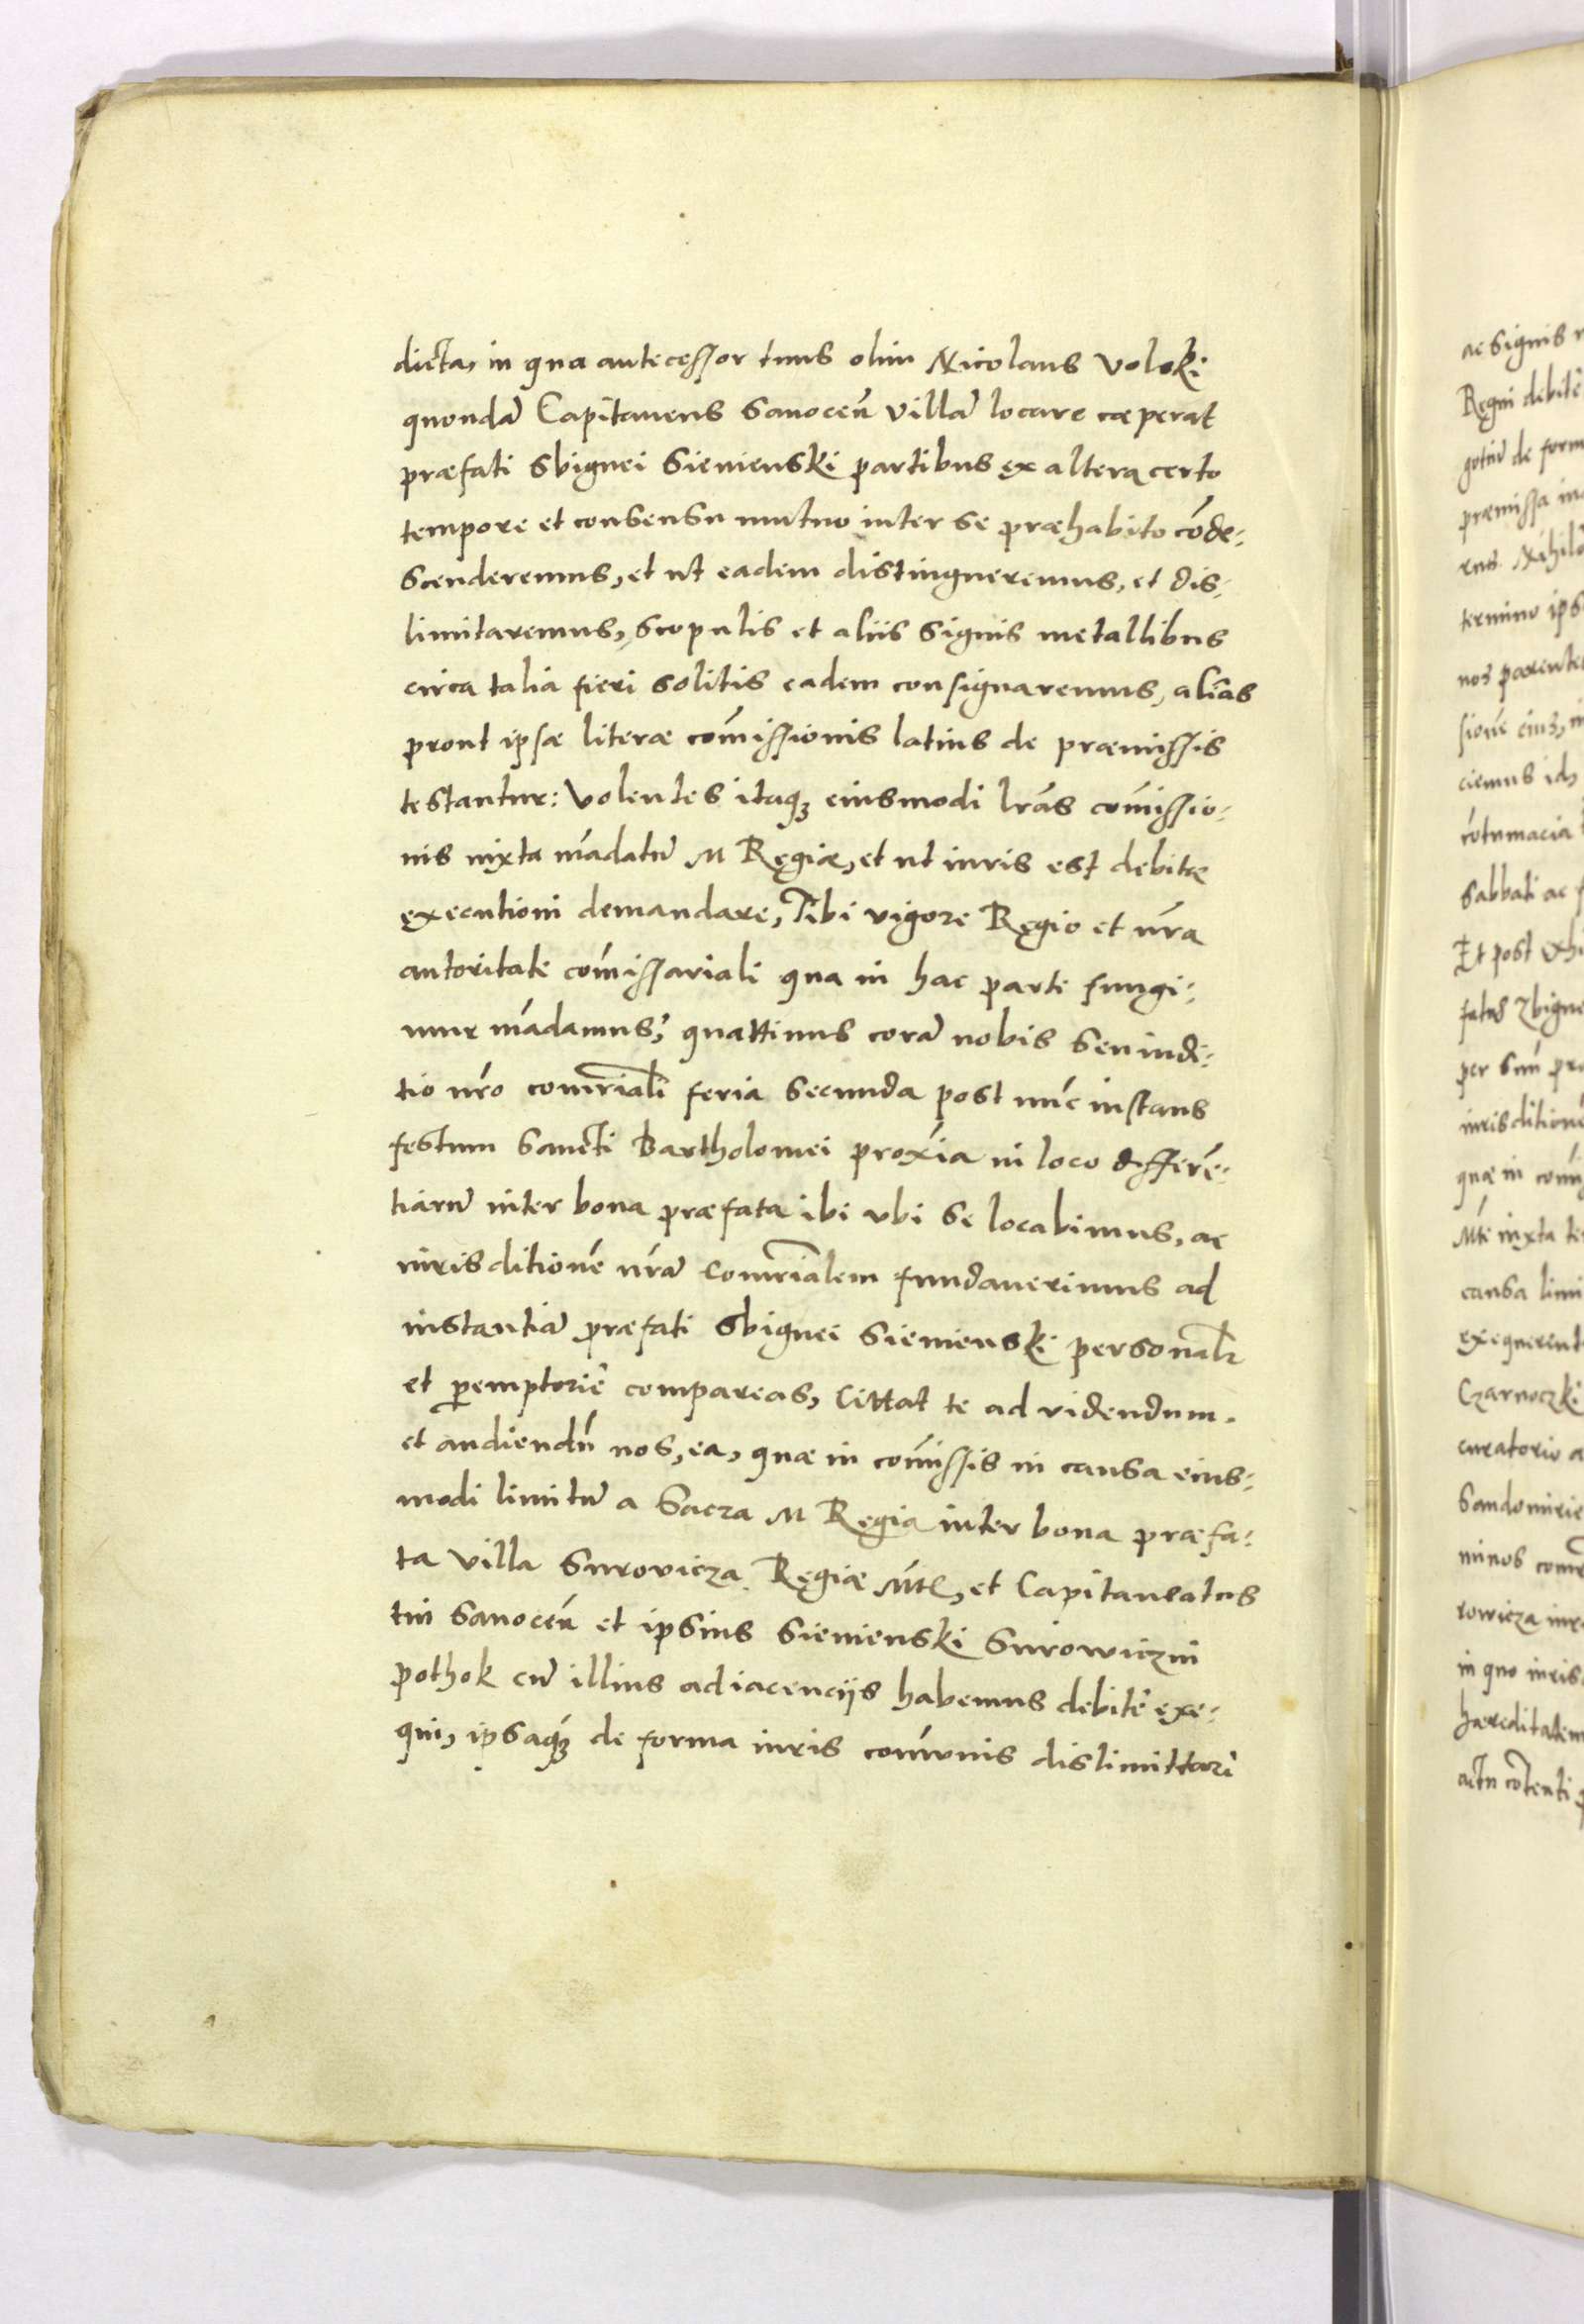 dicta, in qua antecessor tuus olim Nicolaus Volski
quondā Capitaneus Sanoceñ villā locare cæperat
præfati Sbignei Sienienski partibus ex altera certo
tempore et consensu mutuo inter se præhabito cōde-
scenderemus, et ut eadem distingueremus, et dis-
limitaremus, scopulis et aliis signis metallibus
circa talia fieri solitis eadem consignaremus, alias
prout ipsæ literæ com̄issionis latius de præmissis
testantur: Volentes itaq3 eiusmodi l̄ras com̄issio-
nis iuxta mādatū M Regiæ, et ut iuris est debitæ
executioni demandare, Tibi vigore Regio et n̄ra
autoritate com̄issariali qua in hac parte fungi-
mur mādamus, quattinus corā nobis seu iudi-
tio n̄ro com̄riali feria secunda post nūc instans
festum Sancti Bartholomei prox̄ia in loco differē-
tiarū inter bona præfata ibi ubi se locabimus, ac
iurisditionē n̄rā Com̄rialem fundaverimus ad
instantiā præfati Sbignei Sienienski personalr
et peremptorie compareas, Cittat te ad videndum
et audiendū nos, ea, quæ in com̄issis in causa eius-
modi limitū a Sacra M Regia inter bona præfa-
ta villa Surovicza Regiæ Mt̄e, et Capitaneatus
tui Sanoceñ et ipsius Sienienski Surowiczni
pothok cū illius adiacenciis habemus debite exe-
qui, ipsaq3 de forma iuris com̄unis dislimittari
ac signis
Regni debite
gotiū de form
præmissa in
termino ips
sione eius, in
ciemus id,
cōtumacia
Sabbati ac
Et post exhi
fatus Zbigne
per suū pro
iurisditionē
quæ in com̄
Mt̄e iuxta te
causa limi
exequerent
Czarnoczki
curatorio a
Sandomirie
minos com̄
rowicza iur
in quo iuris
hæreditatem
actu cōtenti p